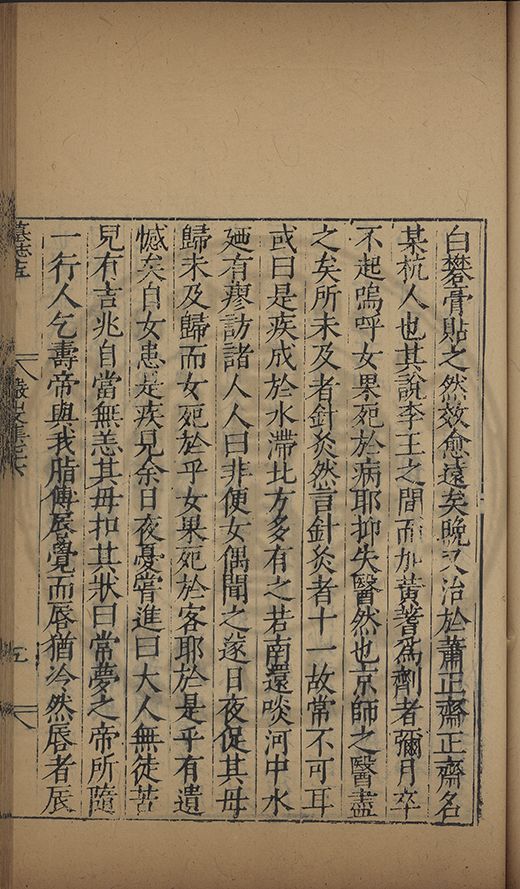 白礬膏貼之然效愈遠矣晚又治於蕭正齋正齋名
某杭人也其說李王之間而加黃蓍為劑者彌月卒
不起嗚呼女果死於病耶抑失醫然也京師之醫盡
之矣所未及者針灸然言針灸者十一故常不可耳
或曰是疾成於水滯北方多有之若南還啖河中水
廼有瘳訪諸人人曰非便女偶聞之遂日夜促其母
歸未及歸而女死於乎女果死於客耶於是乎有遺
憾矣自女患是疾兄余日夜憂嘗進曰大人無徒苦
兒有吉兆自當無恙其母扣其狀曰常夢之帝所隨
一行人乞壽帝與我脂傅唇覺而唇猶冷然唇者辰
墓志五
五